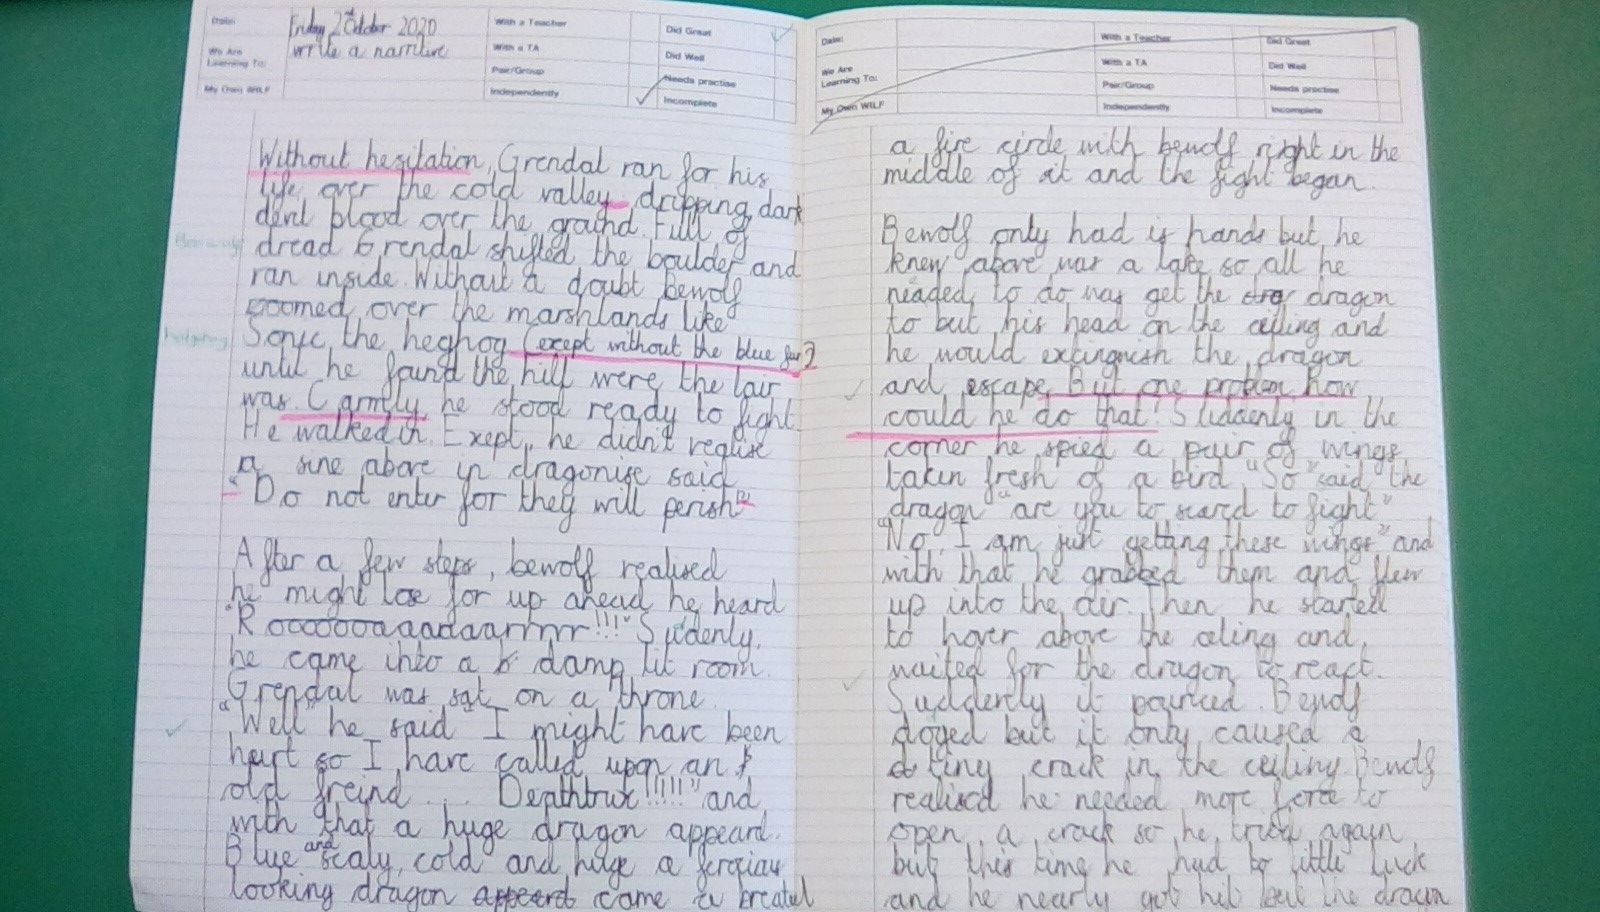 Date:
Friday 2nd October 2020
We Are
Learning To:
write a narritive
My Own WILF
With a Teacher
With a TA
Pair/Group
Independently
Did Great
Did Well
Needs practise
Incomplete
Without hesitation, Grendal ran for his
life over the cold valley dripping dark
devil blood over the graind. Full of
dread Grendal shifted the boulder and
ran inside. Without a doubt bewolf
zoomed over the marshlands like
Sonic the heghog (except without the blue fur)
until he found the hill were the lair
was. Carmly, he stood ready to fight.
He walked in. Exept, he didn't reglise
a sine above in dragonise said
"Do not enter for they will perish"
After a few steps, bewolf realised
he might lose for up ahead he heard
"Roooooooaaaadaarrrrr!!!" Suddenly,
he came into a damp lit room.
Grendal was sat on a throne.
"Well" he said "I might have been
hurt so I have called upon an
old freind.... Deathtrux!!!!!" and
with that a huge dragon appeard.
Blue and scaly, cold and huge a
looking dragon appeard came a
Date:
We Are
Learning To:
My Own WILF
With a Teacher
With a TA
Pair/Group
Independently
Did Great
Did Well
Needs practise
Incomplete
a fire circle with bewolf right in the
middle of it and the fight began.
Bewolf only had is hands but he
knew above was a lake so all he
neaded to do was get the dra dragon
to but his head on the ceiling and
he would extinguish the dragon
and escape. But one problem how
could he do that! Suddenly in the
corner he spied a pair of wings
taken fresh of a bird. "So" said the
dragon "are you to scared to fight"
"No I am just getting these wings" and
with that he grabbed them and flew
up into the air. Then he started
to hover above the celing and
waited for the dragon to react.
Suddently it pounced. Bewolf
doged but it only caused a
tiny crack in the ceiling Bewolf
realised he needed more force to
open a crack so he tried again
but this time he had to little luck
and he nearly got hit but the